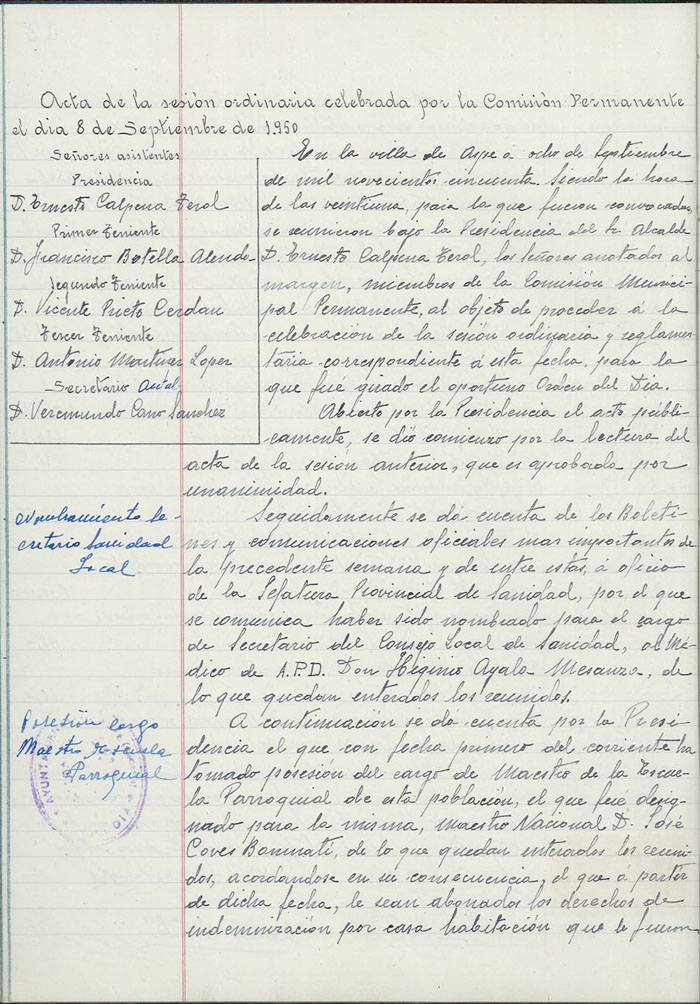 Acta de la sesión ordinaria celebrada por la Comisión Permanente
el dia 8 de Septiembre de 1.950
Señores asistentes
Presidencia
D. Ernesto Calpena Ferol
Primer Teniente
D. Francisco Botella
Segundo Teniente
D. Vicente Prieto Cerdan
Tercer Teniente
D. Antonio Martinez Lopez
Secretario actal.
D. Veremundo Cano Sanchez
En la villa de Aspe a ocho de Septiembre
de mil novecientos cincuenta. Siendo la hora
de las veintiuna, para la que fueron convocados,
se reunieron bajo la Presidencia del Sr. Alcalde
D. Ernesto Calpena Ferol, los Señores anotados al
margen, miembros de la Comisión Munici-
pal Permanente, al objeto de proceder á la
celebración de la sesión ordinaria y reglamen-
taria correspondiente á esta fecha, para la
que fué girado el oportuno Orden del Dia.
Abierto por la Presidencia el acto públi-
camente, se dió comienzo por la lectura del
acta de la sesión anterior, que es aprobada por
unanimidad.
Nombramiento Se-
cretario Sanidad
Local
Seguidamente se dá cuenta de los Boleti-
nes y comunicaciones oficiales mas importantes de
la precedente semana y de entre estas, á oficio
de la Jefatura Provincial de Sanidad, por el que
se comunica haber sido nombrado para el cargo
de Secretario del Consejo Local de Sanidad, al Mé-
dico de A.P.D. Don Higinio Ayala Mesanza, de
lo que quedan enterados los reunidos.
Posesión cargo
Maestro Escuela
Parroquial
A continuación se dá cuenta por la Presi-
dencia el que con fecha primero del corriente ha
tomado posesión del cargo de Maestro de la Escue-
la Parroquial de esta población, el que fué desig-
nado para la misma, Maestro Nacional D. José
Coves Bonmatí, de lo que quedan enterados los reuni-
dos, acordandose en su consecuencia, el que a partir
de dicha fecha, le sean abonados los derechos de
indemnización por casa habitación que le fueron